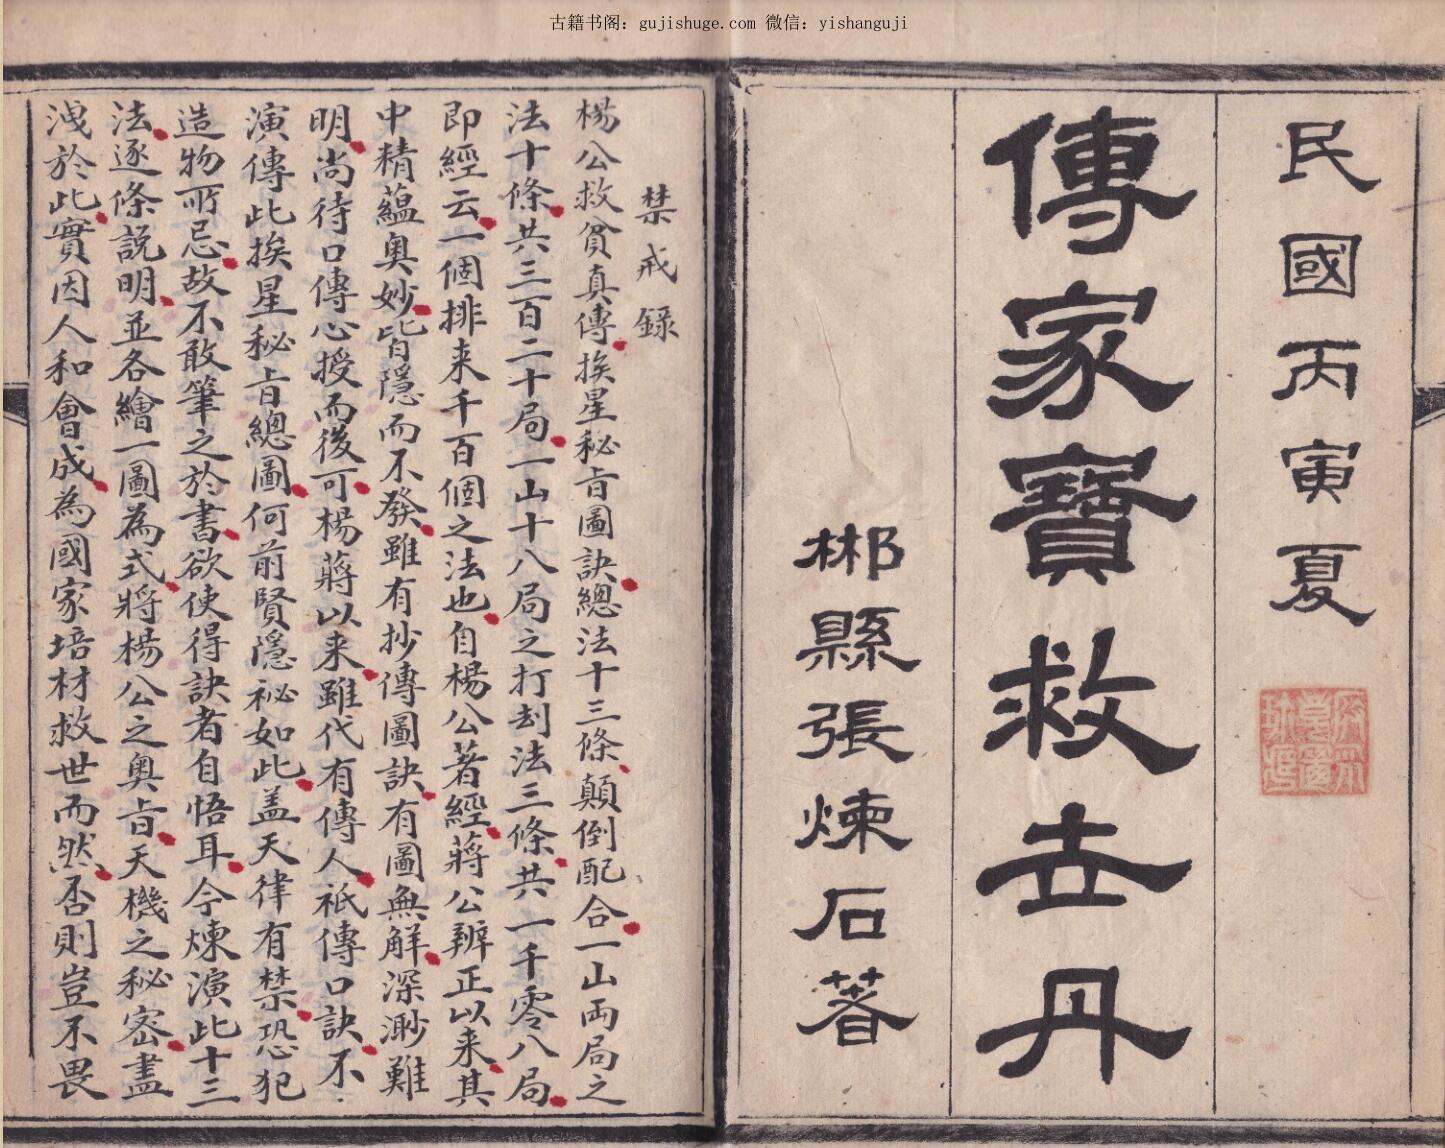 古籍书阁：gujishuge.com 微信：yishanguji
民國丙寅夏
傳家寶救世丹
郴縣張煉石著
禁戒録
楊公救貧真傳挨星秘旨圖訣總法十三條顛倒配合一山両局之
法十條共三百二十局一山十八局之打刼法三條共一千零八局
即經云一個排来千百個之法也自楊公著經蔣公辨正以来其
中精蘊奥妙皆隱而不發雖有抄傳圖訣有圖無解深渺難
明尚待口傳心授而後可楊蔣以来雖代有傳人祇傳口訣不
演傳此挨星秘旨總圖何前賢隱祕如此盖天律有禁恐犯
造物所忌故不敢筆之於書欲使得訣者自悟耳今煉演此十三
法逐條説明並各繪一圖為式將楊公之奥旨天機之秘密盡
洩於此實因人和會成為國家培材救世而然否則豈不畏